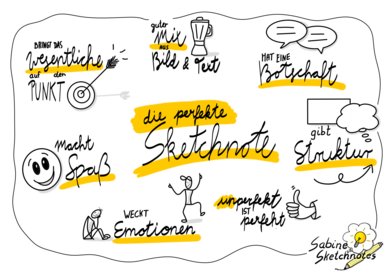 BRINGT DAS
wesentliche
auf den
PUNKT
guter
Mix
aus
Bild & Text
HAT EINE
Botschaft
die perfekte
Sketchnote
gibt
Struktur
macht
Spaß
WECKT
Emotionen
unperfekt
IST
perfekt
Sabine
Sketchnotes